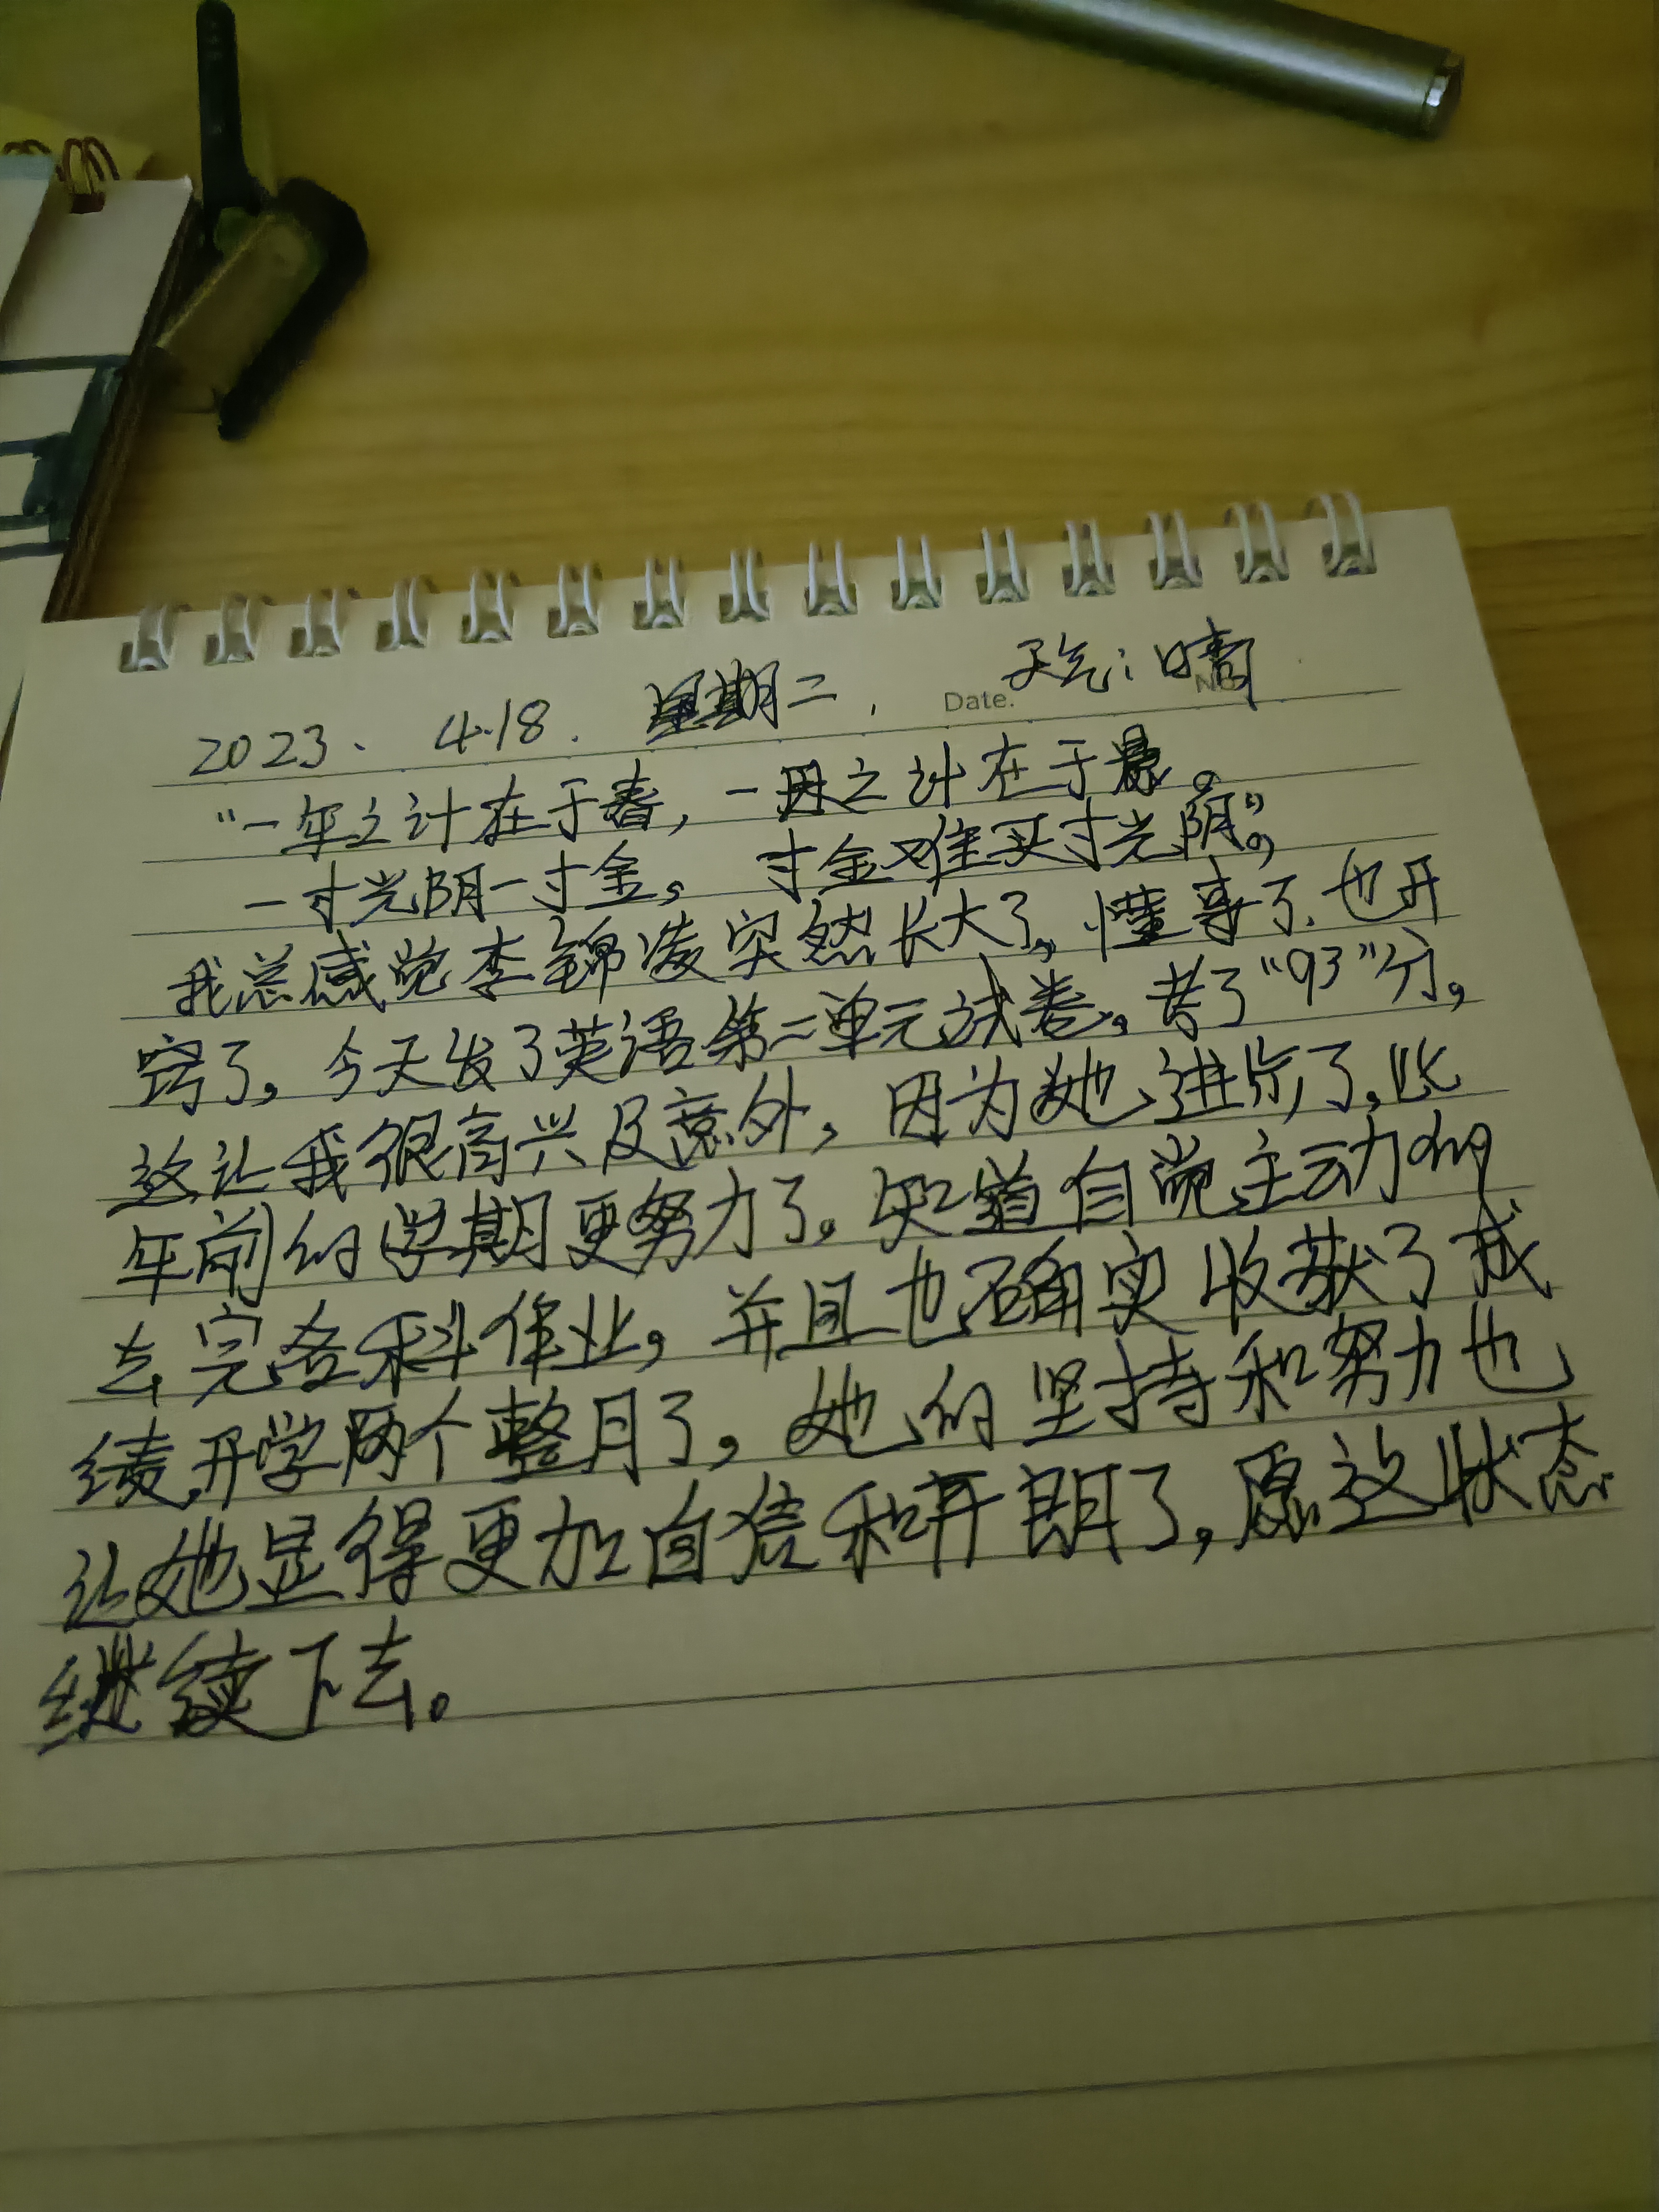 2023、 4.18. 星期二, Date. 天气:晴
"一年之计在于春,一日之计在于晨。
一寸光阴一寸金。寸金难买寸光阴"。
我总感觉李锦凌突然长大了,懂事了、也开
窍了。今天发了英语第二单元试卷。考了"93"分,
这让我很高兴及意外,因为她进步了,比
年前的学期更努力了。知道自觉主动的
去完各科作业,并且也确实收获了成
绩,开学两个整月了,她的坚持和努力也
让她显得更加自信和开朗了,愿这状态
继续下去。